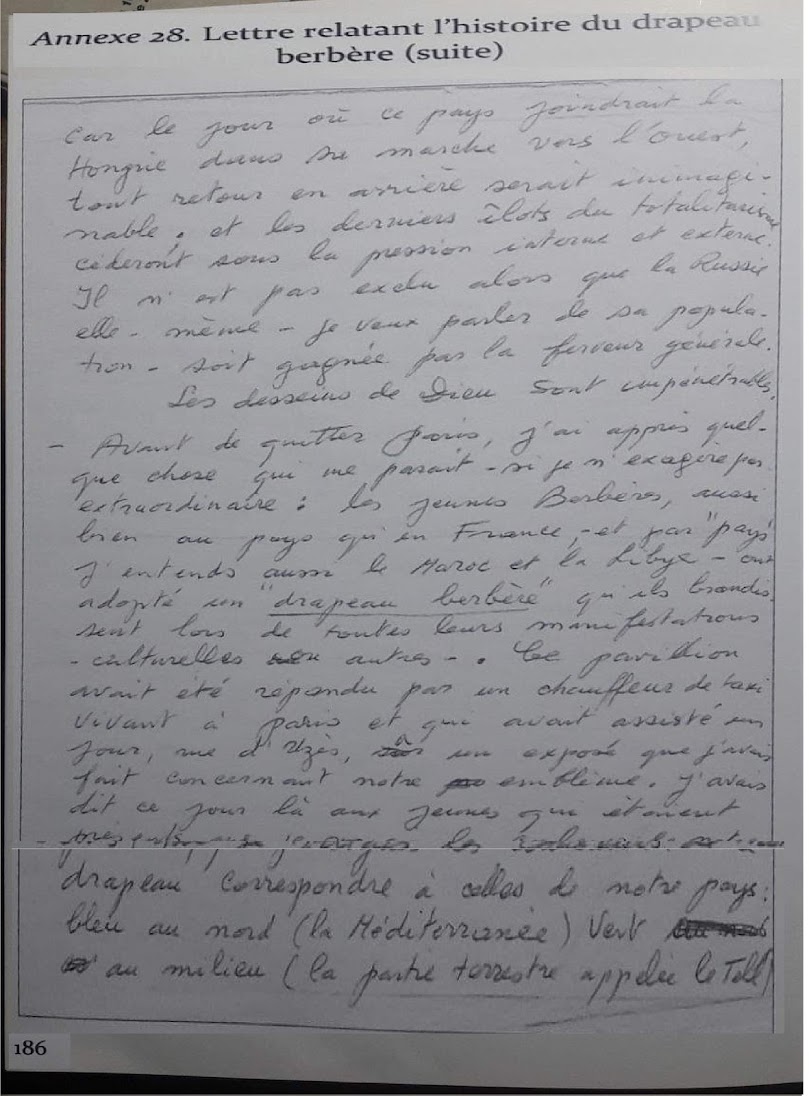 Annexe 28. Lettre relatant l'histoire du drapeau
berbère (suite)
car le jour où ce pays joindrait la
Hongrie dans sa marche vers l'Ouest,
tout retour en arrière serait inimagi-
nable ; et les derniers îlots du totalitarisme
cèderont sous la pression interne et externe.
Il n'est pas exclu alors que la Russie
elle-même - je veux parler de sa popula-
tion - soit gagnée par la ferveur générale.
Les desseins de Dieu sont impénétrables.
- Avant de quitter Paris, j'ai appris quel-
que chose qui me parait - si je n'exagère pas
extraordinaire : les jeunes Berbères, aussi
bien au pays qu'en France, - et par "pays"
j'entends aussi le Maroc et la Libye - ont
adopté un "drapeau berbère" qu'ils brandis-
sent lors de toutes leurs manifestations
- culturelles ou autres - . Ce pavillon
avait été répandu par un chauffeur de taxi
vivant à Paris et qui avait assisté un
jour, rue d'Uzès, à un exposé que j'avais
fait concernant notre emblème. J'avais
dit ce jour là aux jeunes qui étaient
les
drapeau correspondre à celles de notre pays :
bleu au nord (la Méditerranée) Vert
au milieu (la partie terrestre appelée le Tell)
186